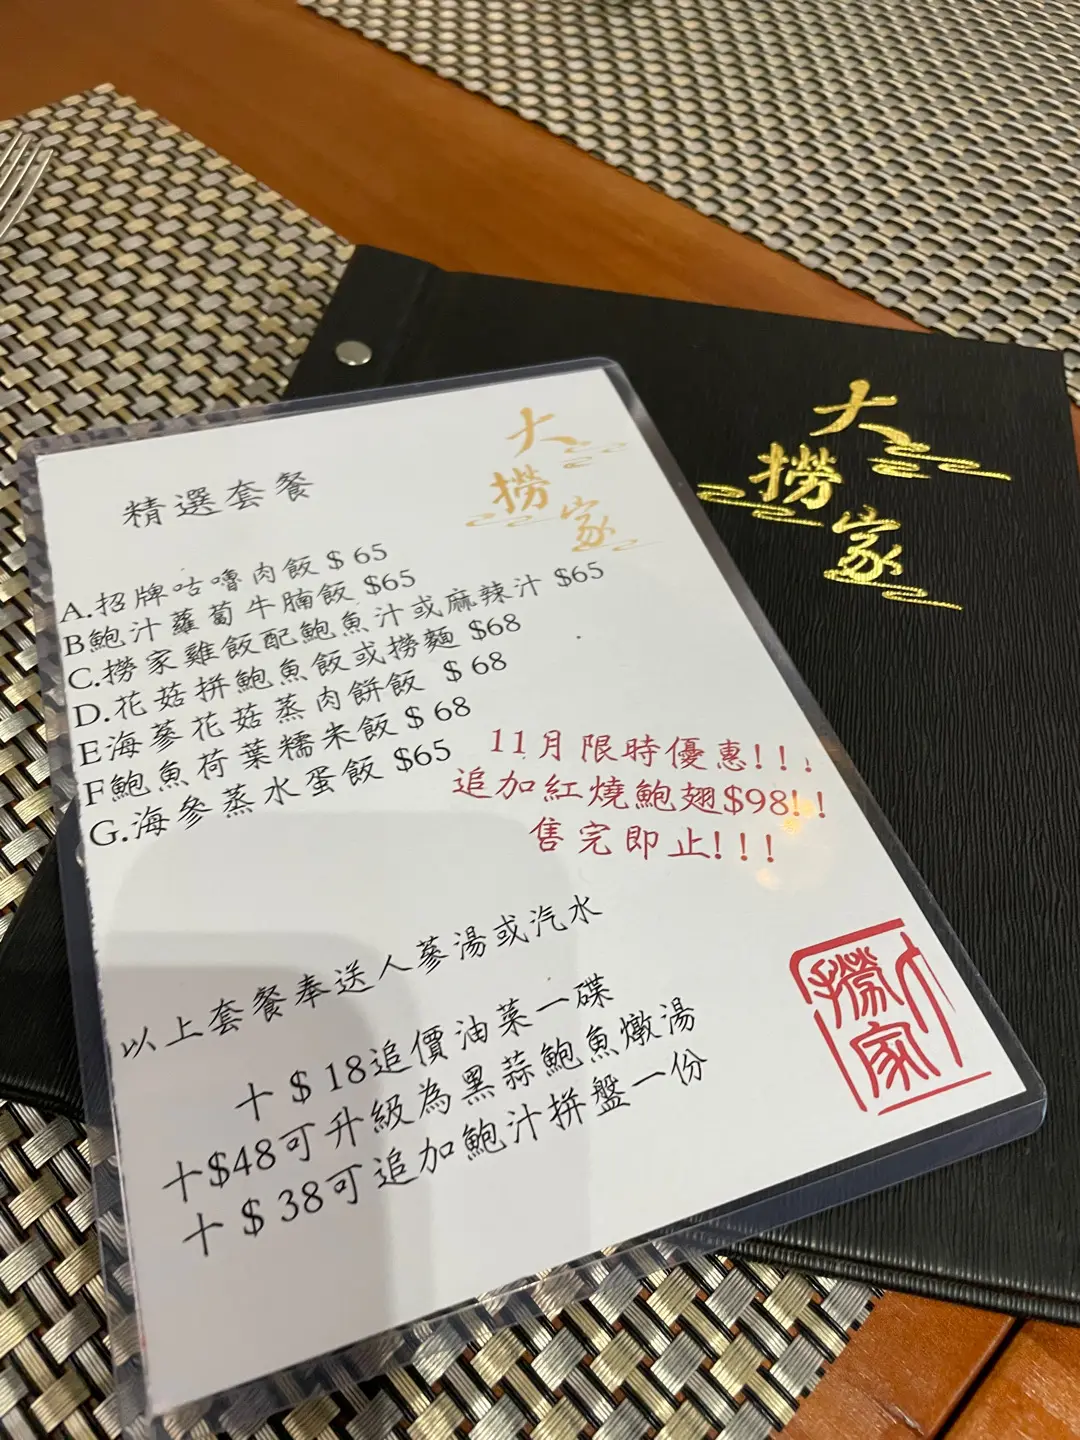 大撈家
大撈家
精選套餐
A.招牌咕嚕肉飯 $ 65
B鮑汁蘿蔔牛腩飯 $65
C.撈家雞飯配鮑魚汁或麻辣汁 $65
D.花菇拼鮑魚飯或撈麵 $68
E海蔘花菇蒸肉餅飯 $ 68
F鮑魚荷葉糯米飯 $ 68
G.海參蒸水蛋飯 $65
11月限時優惠!!!
追加紅燒鮑翅$98!!
售完即止!!!
以上套餐奉送人蔘湯或汽水
+ $ 18追價油菜一碟
+$48可升級為黑蒜鮑魚燉湯
+ $ 38可追加鮑汁拼盤一份
大撈家